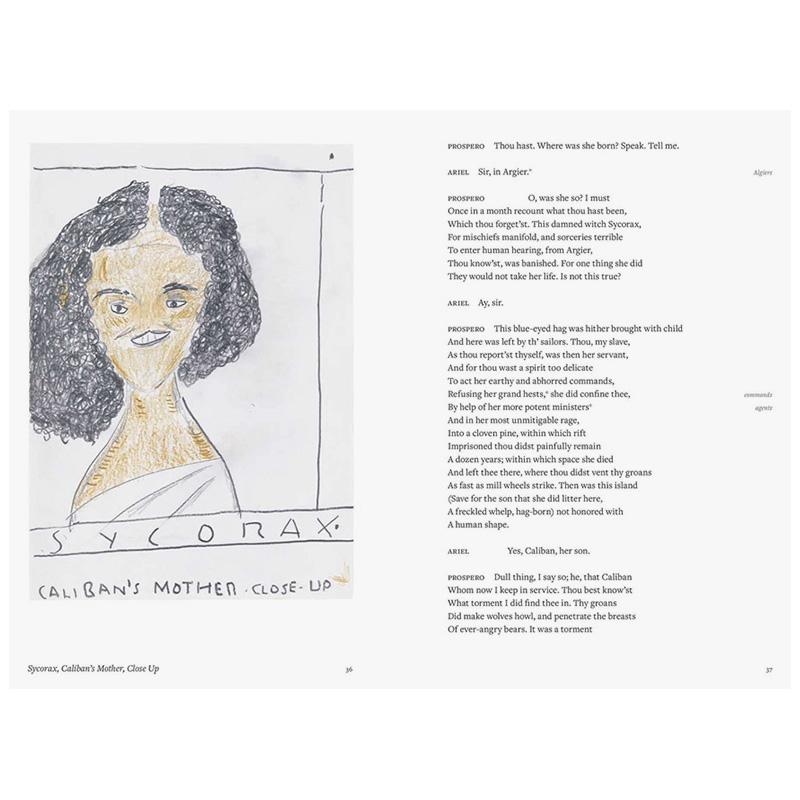 SYCORAX.
CALIBAN'S MOTHER . CLOSE-UP
Sycorax, Caliban's Mother, Close Up
36
PROSPERO Thou hast. Where was she born? Speak. Tell me.
ARIEL Sir, in Argier.* Algiers
PROSPERO O, was she so? I must
Once in a month recount what thou hast been,
Which thou forget'st. This damned witch Sycorax,
For mischiefs manifold, and sorceries terrible
To enter human hearing, from Argier,
Thou know'st, was banished. For one thing she did
They would not take her life. Is not this true?
ARIEL Ay, sir.
PROSPERO This blue-eyed hag was hither brought with child
And here was left by th' sailors. Thou, my slave,
As thou report'st thyself, was then her servant,
And for thou wast a spirit too delicate
To act her earthy and abhorred commands,
Refusing her grand hests,* she did confine thee, commands
By help of her more potent ministers* agents
And in her most unmitigable rage,
Into a cloven pine, within which rift
Imprisoned thou didst painfully remain
A dozen years; within which space she died
And left thee there, where thou didst vent thy groans
As fast as mill wheels strike. Then was this island
(Save for the son that she did litter here,
A freckled whelp, hag-born) not honored with
A human shape.
ARIEL Yes, Caliban, her son.
PROSPERO Dull thing, I say so; he, that Caliban
Whom now I keep in service. Thou best know'st
What torment I did find thee in. Thy groans
Did make wolves howl, and penetrate the breasts
Of ever-angry bears. It was a torment
37